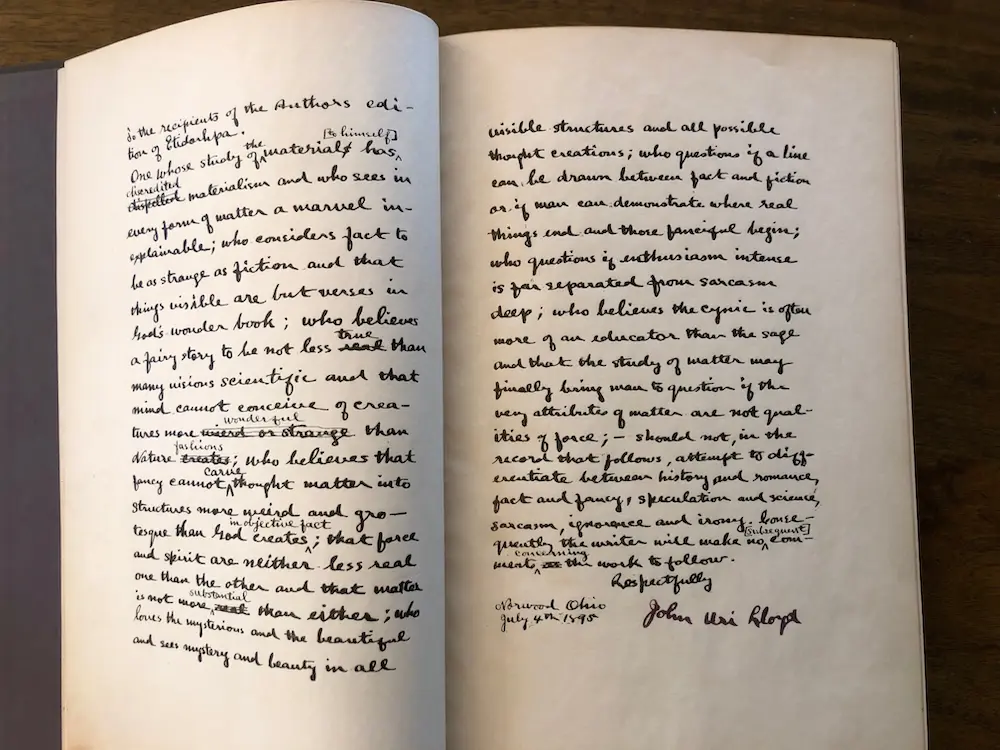 To the recipients of the Authors edi-
tion of Etidorhpa.
[to himself]
One whose study of the material has
discredited
dispelled materialism and who sees in
every form of matter a marvel in-
explainable; who considers fact to
be as strange as fiction and that
things visible are but verses in
God's wonder book; who believes
true
a fairy story to be not less real than
many visions scientific and that
mind cannot conceive of crea-
wonderful
tures more wierd or strange than
fashions
Nature creates; who believes that
carve
fancy cannot thought matter into
structures more weird and gro-
in objective fact
tesque than God creates; that force
and spirit are neither less real
one than the other and that matter
substantial
is not more real than either; who
loves the mysterious and the beautiful
and sees mystery and beauty in all
visible structures and all possible
thought creations; who questions if a line
can be drawn between fact and fiction
or if man can demonstrate where real
things end and those fanciful begin;
who questions if enthusiasm intense
is far separated from sarcasm
deep; who believes the cynic is often
more of an educator than the sage
and that the study of matter may
finally bring man to question if the
very attributes of matter are not qual-
ities of force; — should not, in the
record that follows, attempt to diff-
erentiate between history and romance,
fact and fancy, speculation and science,
sarcasm, ignorance and irony. Conse-
[subsequent]
quently the writer will make no com-
concerning
ments the work to follow.
Respectfully
Norwood Ohio
July 4th 1895
John Uri Lloyd